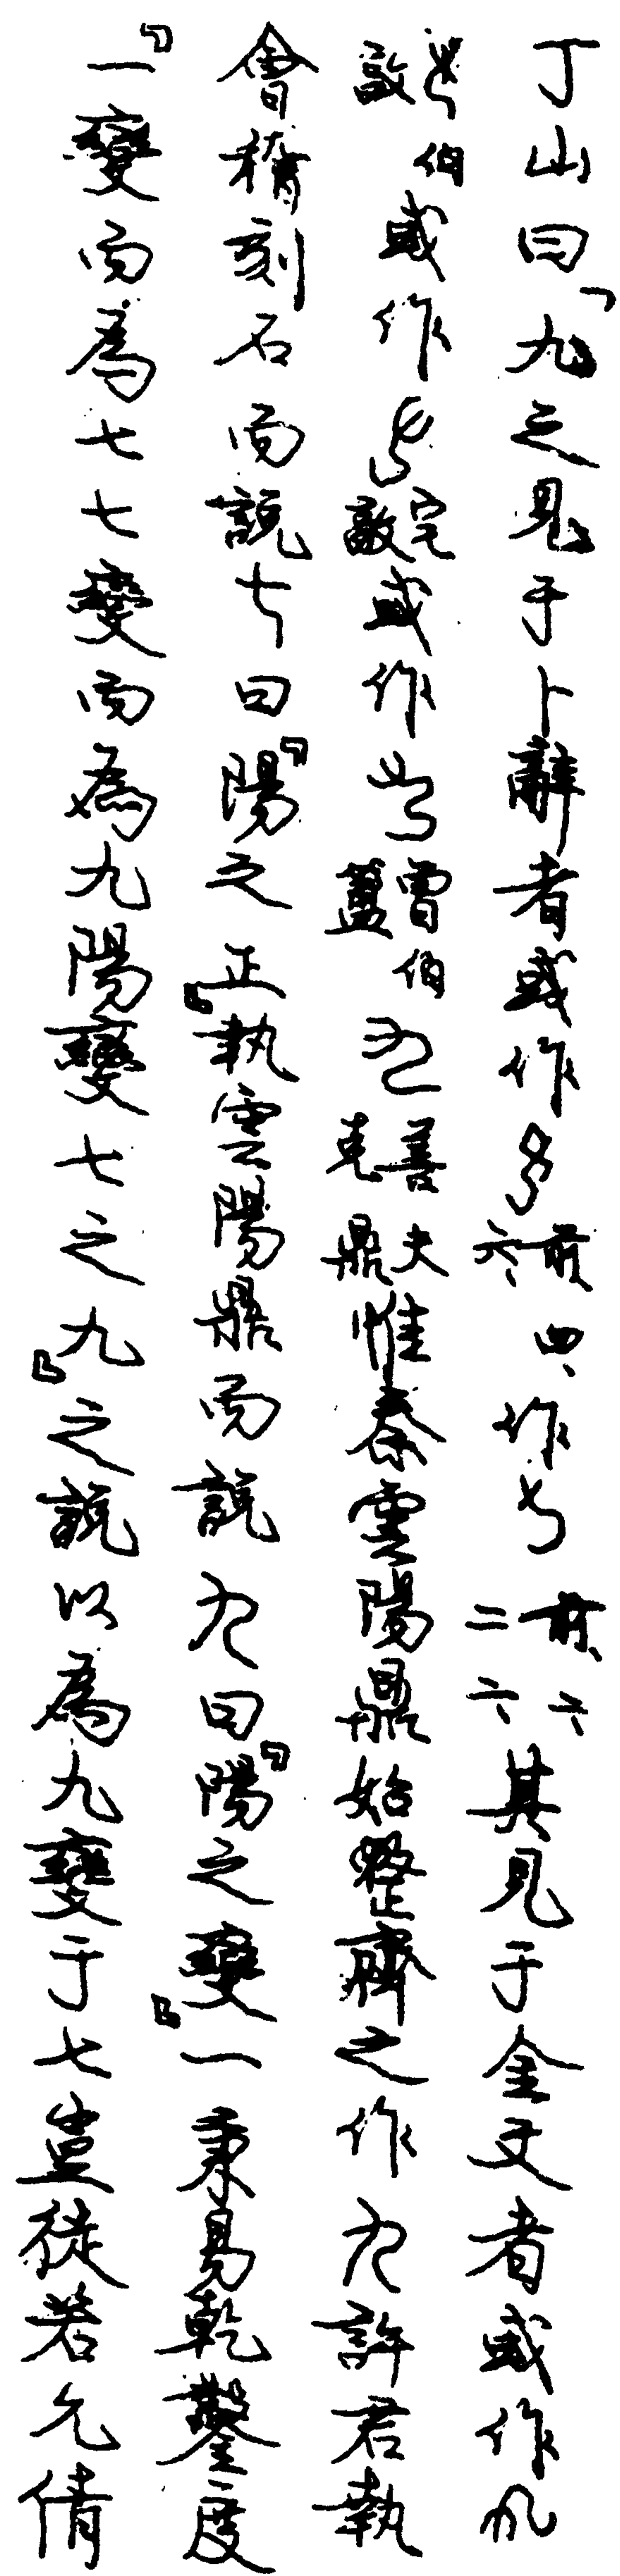 丁山曰「九之見于卜辭者或作前四、六、作前、六、二六、其見于金文者或作
伯敦或作宅敦或作曾伯簠善夫克鼎惟秦雲陽鼎始整齊之作九許君執
會稽刻石而說七曰『陽之正』執雲陽鼎而說九曰『陽之變』一秉易乾鑿度
『一變而為七七變而為九陽變七之九』之說以為九變于七豈徒若允倩